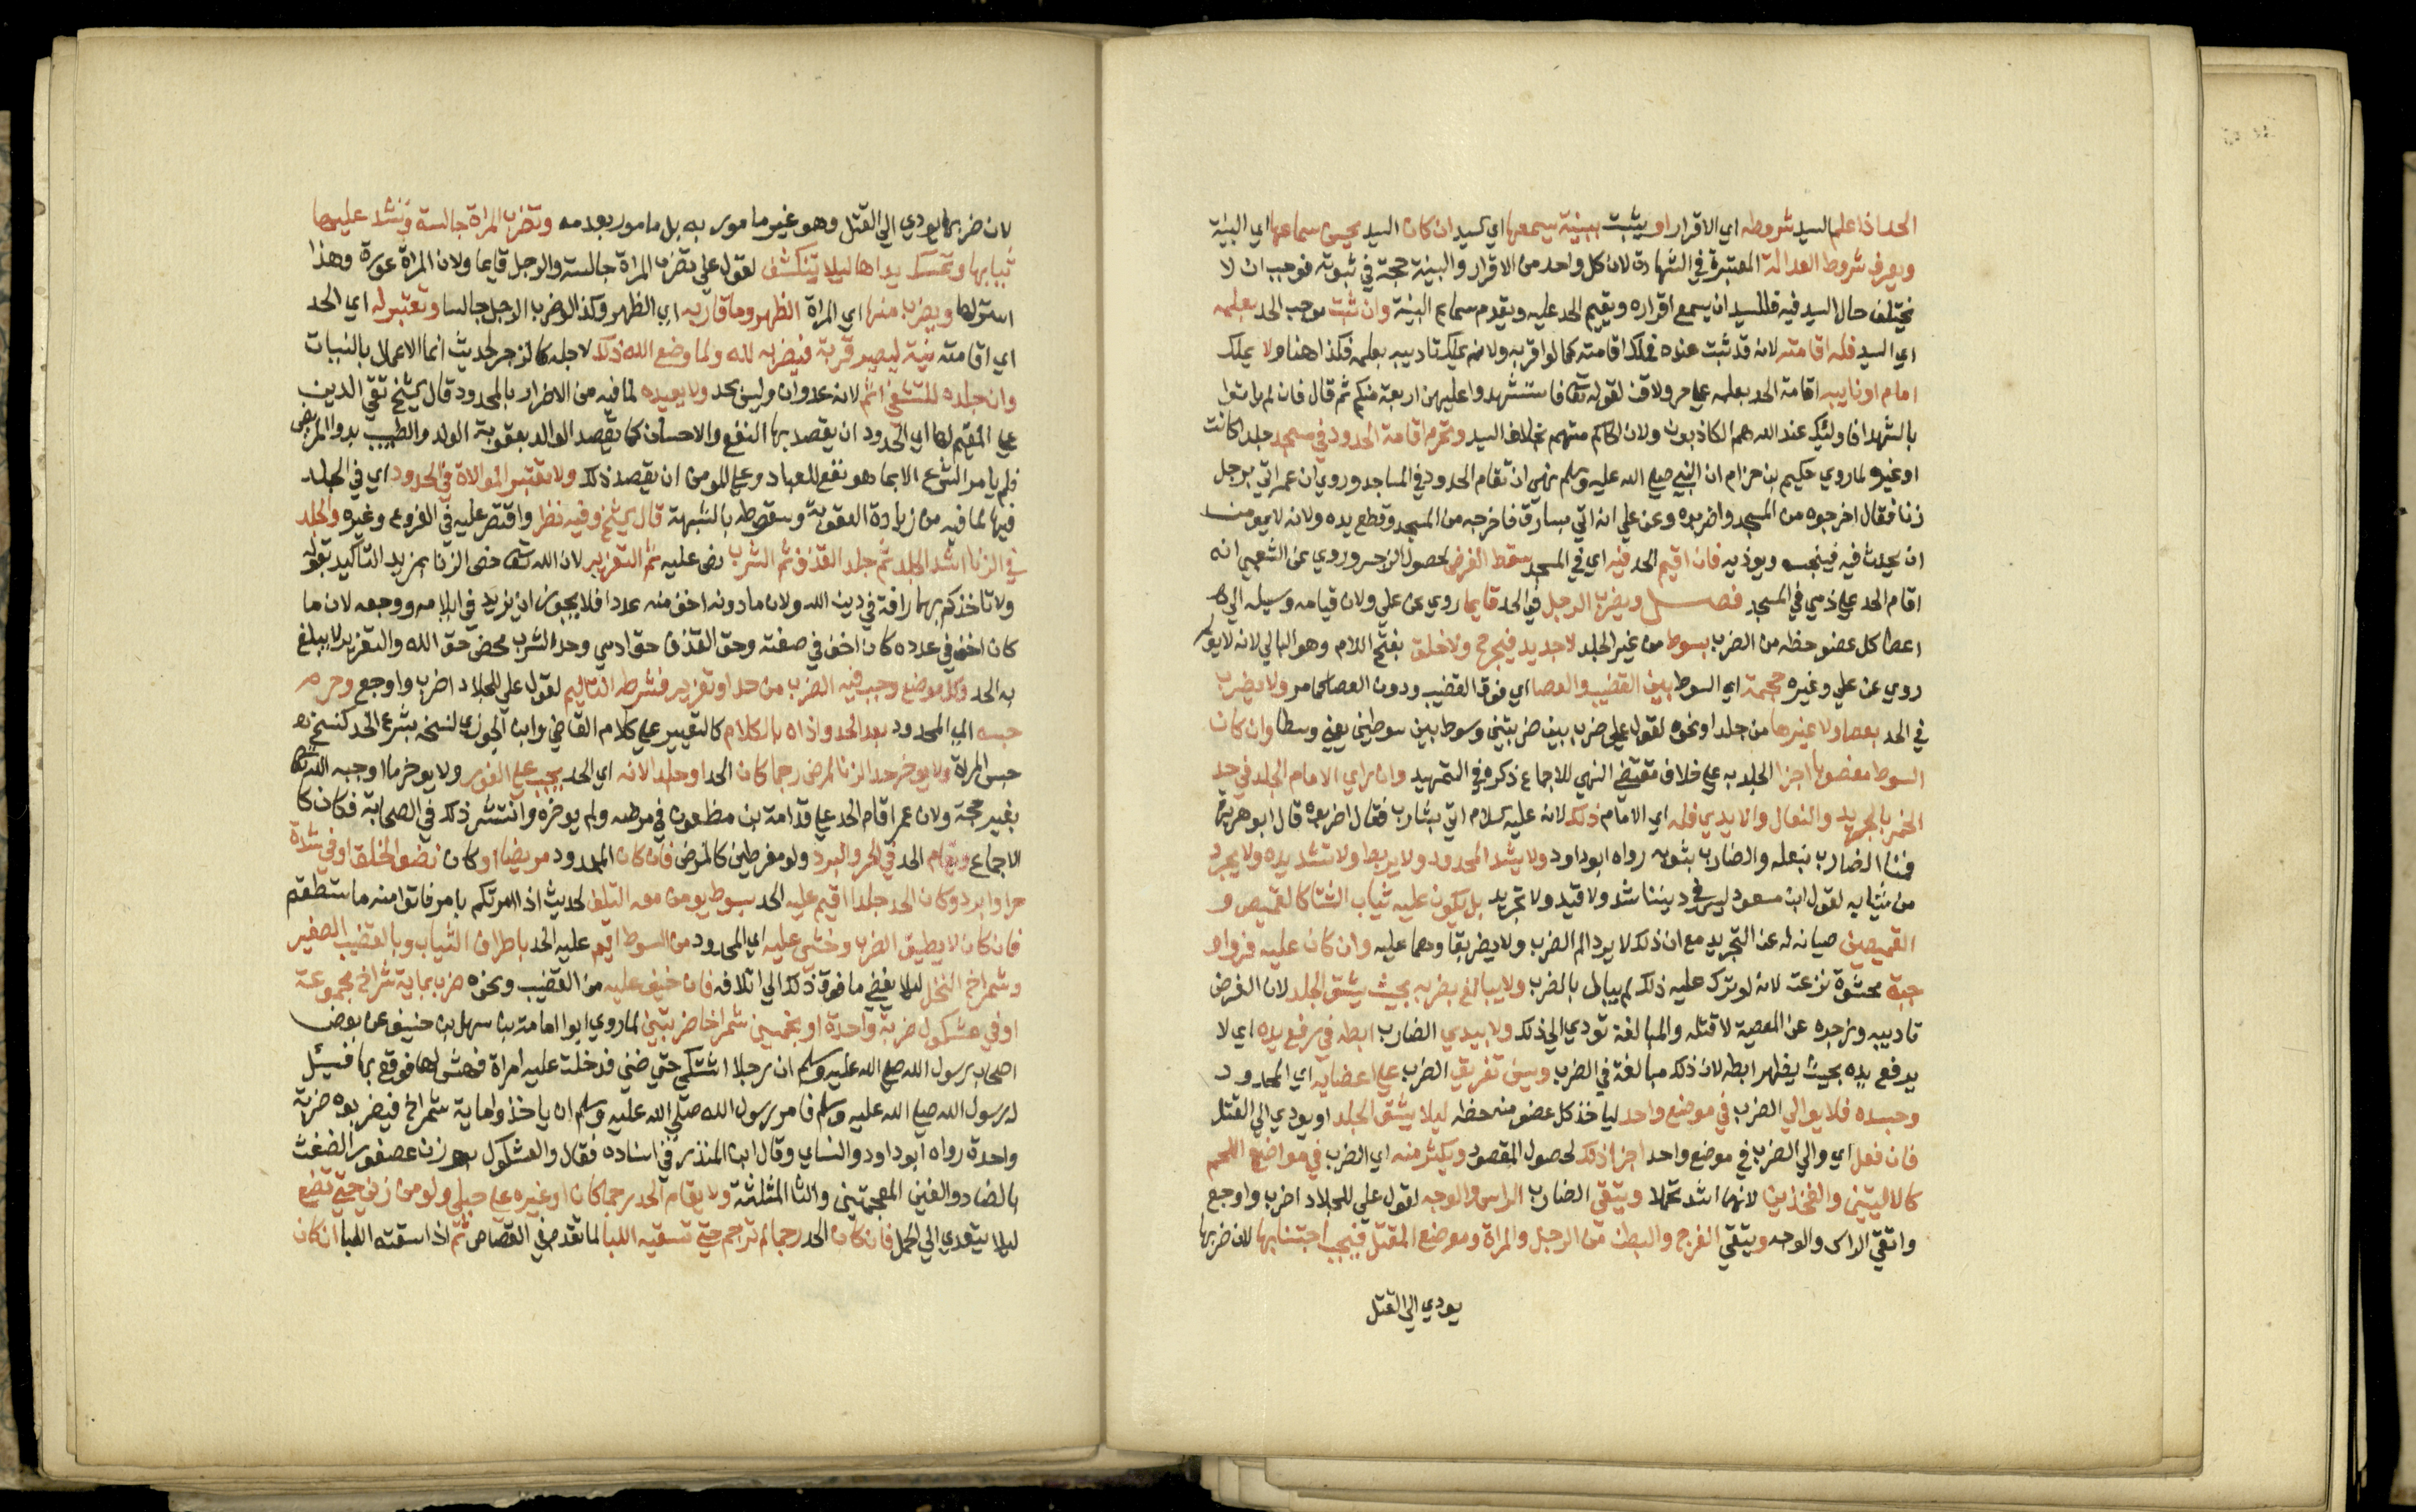 الحد اذا علم السيد شروطه اي الاقرار او يثبت ببينة يسمعها اي السيد ان كان السيد يحسن سماعها اي البينة
ويعرف شروط العدالة المعتبرة في الشهادة لان كل واحد من الاقرار والبينة حجة في ثبوته فوجب ان لا
يختلف حال السيد فيه فللسيد ان يسمع اقراره ويقيم الحد عليه ويقدم سماع البينة وان ثبت موجب الحد بعلمه
اي السيد فله اقامته لانه قد ثبت عنده فملك اقامته كما لو اقر به ولانه يملك تاديبه بعلمه فكذا هنا ولا يملك
امام او نايبه اقامة الحد بعلمه علي حر ولا قن لقوله تعالى فاستشهدوا عليهن اربعة منكم ثم قال فان لم ياتوا
بالشهدا فاوليك عند الله هم الكاذبون ولان الحاكم متهم بخلاف السيد وتحرم اقامة الحدود في مسجد جلدا كانت
او غيره لما روي حكيم بن حزام ان النبي صلي الله عليه وسلم نهى ان تقام الحدود في المساجد وروي ان عمر اتي برجل
زنا فقال اخرجوه من المسجد واضربوه وعن علي انه اتي بسارق فاخرجه من المسجد وقطع يده ولانه لا يومن
ان يحدث فيه فينجسه ويوذيه فان اقيم الحد فيه اي في المسجد سقط الفرض لحصول الزجر وروي عن الشعبي انه
اقام الحد علي ذمي في المسجد فصل ويضرب الرجل في الحد قايما روي عن علي ولان قيامه وسيلة الي
اعطا كل عضو حظه من الضرب بسوط من غير الجلد لا جديد فيجرح ولا خلق بفتح اللام وهو البالي لانه لا يولم
روي عن علي وغيره حجمه اي السوط بين القضيب والعصا اي فوق القضيب ودون العصا كما مر ولا يضرب
في الحد بعصا ولا غيرها من جلد او نحوه لقول علي ضرب بين ضربتين وسوط بين سوطين يعني وسطا وان كان
السوط مغصوبا اجزا الجلد به علي خلاف مقتضي النهي للاجماع ذكره في التمهيد وان راي الامام الجلد في حد
الخمر بالجريد والنعال والايدي فله اي الامام ذلك لانه عليه السلام اتي بشارب فقال اضربوه قال ابو هريرة
فمنا الضارب بنعله والضارب بثوبه رواه ابو داود ولا يشد المحدود ولا يربط ولا تشد يده ولا يجرد
من ثيابه لقول ابن مسعود ليس في ديننا شد ولا قيد ولا تجريد بل يكون عليه ثياب الشتا كالقميص و
القميصين صيانة له عن التجريد مع ان ذلك لا يرد الم الضرب ولا يضر بقاوهما عليه وان كان عليه فرو او
جبة محشوة نزعت لانه لو ترك عليه ذلك لم يبال بالضرب ولا يبالغ بضربه بحيث يشق الجلد لان الغرض
تاديبه وزجره عن المعصية لا قتله والمبالغة تودي الي ذلك ولا يبدي الضارب ابطه في رفع يده اي لا
يرفع يده بحيث يظهر ابطه لان ذلك مبالغة في الضرب ويسن تفريق الضرب علي اعضايه اي المحدود
وجسده فلا يوالي الضرب في موضع واحد لياخذ كل عضو منه حظه ليلا يشق الجلد او يودي الي القتل
فان فعل اي والي الضرب في موضع واحد اجزا ذلك لحصول المقصود ويكثر منه اي الضرب في مواضع اللحم
كالاليتين والفخذين لانهما اشد تحملا ويتقي الضارب الراس والوجه لقول علي للجلاد اضرب واوجع
واتقي الراس والوجه ويتقي الفرج والبطن من الرجل والمراة وموضع المقتل فيجب اجتنابها لان ضربها
يودي الي القتل
لان ضربها يودي الي القتل وهو غير مامور به بل مامور بعدمه وتضرب المراة جالسة وتشد عليها
ثيابها وتمسك يداها ليلا تنكشف لقول علي تضرب المراة جالسة والرجل قايما ولان المراة عورة وهذا
استر لها ويضرب منها اي المراة الظهر وما قاربه اي الظهر وكذا لو ضرب الرجل جالسا وتعتبر له اي الحد
اي اقامته نية ليصير قربة فيضربه لله ولما وضع الله ذلك لاجله كالزجر لحديث انما الاعمال بالنيات
وان جلده للتشفي اثم لانه عدوان وليس بحد ولا يعيده لما فيه من الاضرار بالمحدود قال الشيخ تقي الدين
علي المقيم لها اي الحدود ان يقصد بها النفع والاحسان كما يقصد الوالد بعقوبة الولد والطبيب بدوا المريض
فلم يامر الشرع الا بما هو نفع للعباد وعلي المومن ان يقصد ذلك ولا تعتبر الموالاة في الحدود اي في الجلد
فيها لما فيه من زيادة العقوبة وسقوطه بالشبهة قال الشيخ وفيه نظر واقتصر عليه في الفروع وغيره والجلد
في الزنا اشد الجلد ثم جلد القذف ثم الشرب نص عليه ثم التعزير لان الله تعالى خص الزنا بمزيد التاكيد بقوله
ولا تاخذكم بهما رافة في دين الله ولان ما دونه اخف منه عددا فلا يجوز ان يزيد في ايلامه ووجعه لان ما
كان اخف في عدده كان اخف في صفته وحق القذف حق ادمي وحد الشرب محض حق الله والتعزير لا يبلغ
به الحد وكل موضع وجب فيه الضرب من حد او تعزير فشرطه التاليم لقول علي للجلاد اضرب واوجع وحرم
حبسه اي المحدود بعد الحد واذاه بالكلام كالتعيير علي كلام القاضي وابن الجوزي لنسخه بشرع الحد كنسخ
حبس المراة ولا يوخر حد الزنا لمرض رجما كان الحد او جلدا لانه اي الحد يجب علي الفور ولا يوخر ما اوجبه الله تعالى
بغير حجة ولان عمر اقام الحد علي قدامة بن مظعون في مرضه ولم يوخره وانتشر ذلك في الصحابة فكان كا
الاجماع ويقام الحد في الحر والبرد ولو مفرطين كالمرض فان كان المحدود مريضا او كان نضو الخلق او في شدة
حر او برد وكان الحد جلدا اقيم عليه الحد بسوط يومن معه التلف لحديث اذا امرتكم بامر فاتوا منه ما استطعتم
فان كان لا يطيق الضرب وخشي عليه اي المحدود من السوط اقيم عليه الحد باطراف الثياب وبالقضيب الصغير
وشمراخ النخل ليلا يفضي ما فوق ذلك الي اتلافه فان خيف عليه من القضيب ونحوه ضرب بماية شمراخ مجموعة
او في عشكول ضربة واحدة او بخمسين شمراخا ضربتين لما روي ابوا امامة بن سهل بن حنيف عن بعض
اصحاب رسول الله صلي الله عليه وسلم ان رجلا اشتكي حتي ضني فدخلت عليه امراة فهش لها فوقع بها فسيل
له رسول الله صلي الله عليه وسلم فامر رسول الله صلي الله عليه وسلم ان ياخذوا ماية شمراخ فيضربوه ضربة
واحدة رواه ابو داود والنساي وقال ابن المنذر في اسناده فقال والعشكول بوزن عصفور الضغث
بالضاد والغين المعجمتين والثا المثلثة ولا يقام الحد رجما كان او غيره علي حبلي ولو من زني حتي تضع
ليلا يتعدي الي الحمل فان كان الحد رجما لم ترجم حتي تسقيه اللبا لما تقدم في القصاص ثم اذا سقته اللبا ان كان